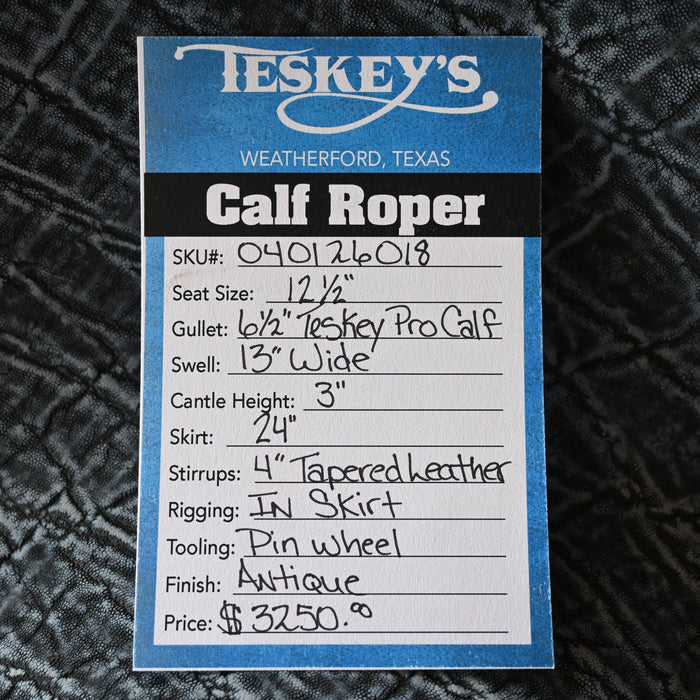 TESKEY'S
WEATHERFORD, TEXAS
Calf Roper
SKU#: 040126018
Seat Size: 12 1/2"
Gullet: 6 1/2" Teskey Pro Calf
Swell: 13" Wide
Cantle Height: 3"
Skirt: 24"
Stirrups: 4" Tapered Leather
Rigging: IN Skirt
Tooling: Pin wheel
Finish: Antique
Price: $3250.00